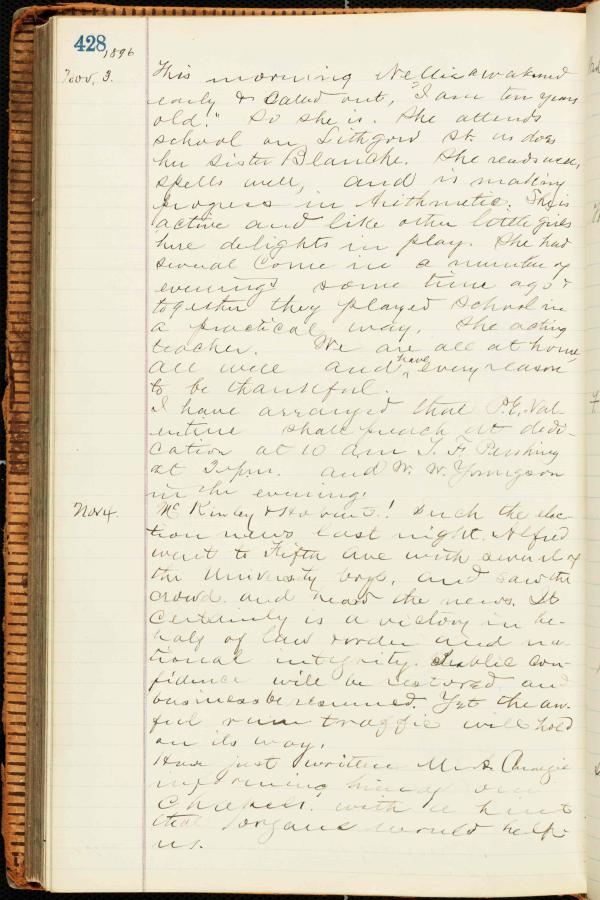 428 1896
Nov. 3. This morning Nellie awakened
early & called out, "I am ten years
old." So she is. She attends
school on Lithgow St. as does
her sister Blanche. She reads well,
spells well, and is making
progress in Arithmetic. She is
active and like other little girls
here delights in play. She had
several come in a number of
evenings some time ago &
together they played school in
a practical way, she acting
teacher. We are all at home,
all well and have every reason
to be thankful.
I have arranged that P. E. Val-
entine shall preach at dedi-
cation at 10 a.m. T. F. Pershing
at 3 p.m. and W. W. Youngson
in the evening.
Nov 4. McKinley & Hobart! Such the elec-
tion news last night. Alfred
went to Fifth Ave with several of
the University boys, and saw the
crowd and heard the news. It
certainly is a victory in be-
half of law & order and na-
tional integrity. Public con-
fidence will be restored and
business be resumed. Yet the aw-
ful rum traffic will hold
on its way.
Have just written Mr. A Carnegie
informing him of our
Chapel with a hint
that organs would help
us.